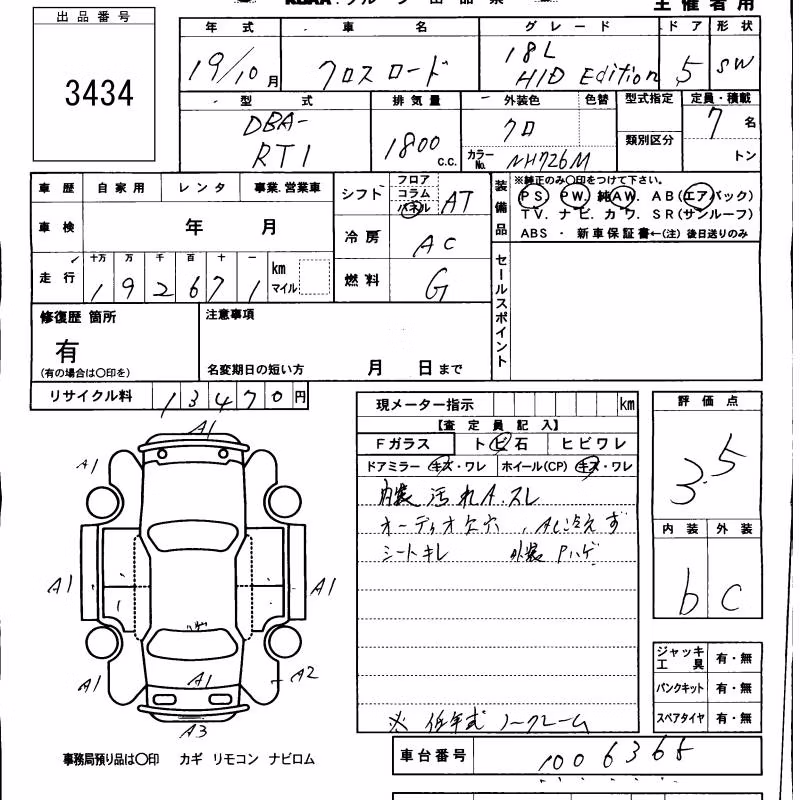 出品番号
3434
主催者用
年式 車名 グレード ドア 形状
19/10月 クロスロード 18L HID Edition 5 SW
型式 排気量 外装色 色替 型式指定 定員・積載
DBA-RT1 1800 c.c. クロ カラーNo. NH726M 類別区分 7名
トン
車歴 自家用 レンタ 事業.営業車
車検 年 月
走行 十万 万 千 百 十 一
192671 km マイル
シフト フロア コラム パネル AT
冷房 AC
燃料 G
装備品 ※純正のみ〇印をつけて下さい。
PS PW. 純AW. AB(エアバック)
TV. ナビ. カワ. SR(サンルーフ)
ABS ・ 新車保証書←(注) 後日送りのみ
セールスポイント
修復歴 箇所
有
(有の場合は〇印を)
注意事項
名変期日の短い方 月 日まで
リサイクル料 13470円
現メーター指示 km
【査定員記入】
Fガラス トビ石 ヒビワレ
ドアミラー キズ・ワレ ホイール(CP) キズ・ワレ
内装 汚れA.スレ
オーディオ欠穴 , AC冷えず
シートキレ 外装 Pハゲ
※ 低年式 ノークレーム
評価点
3.5
内装 外装
b C
ジャッキ工具 有・無
パンクキット 有・無
スペアタイヤ 有・無
車台番号 1006365
A1
A1
A1
A1
A1
A1
A1
A2
A3
事務局預り品は〇印 カギ リモコン ナビロム